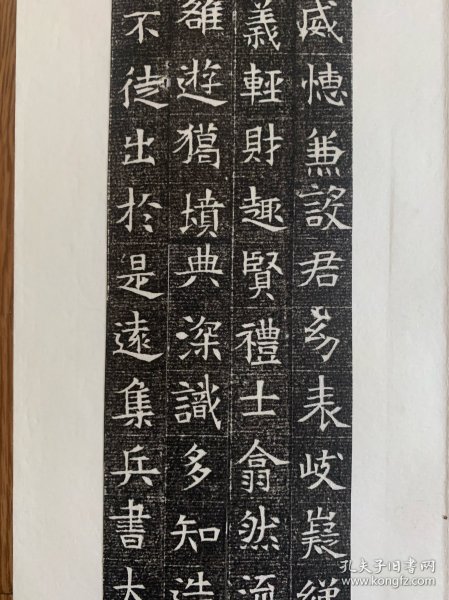 威德兼設君幼表岐嶷
義輕財趣賢禮士翕然流
雖遊獦墳典深識多知造
不徒出於是遠集兵書大
孔夫子旧书网
www.kongfz.com